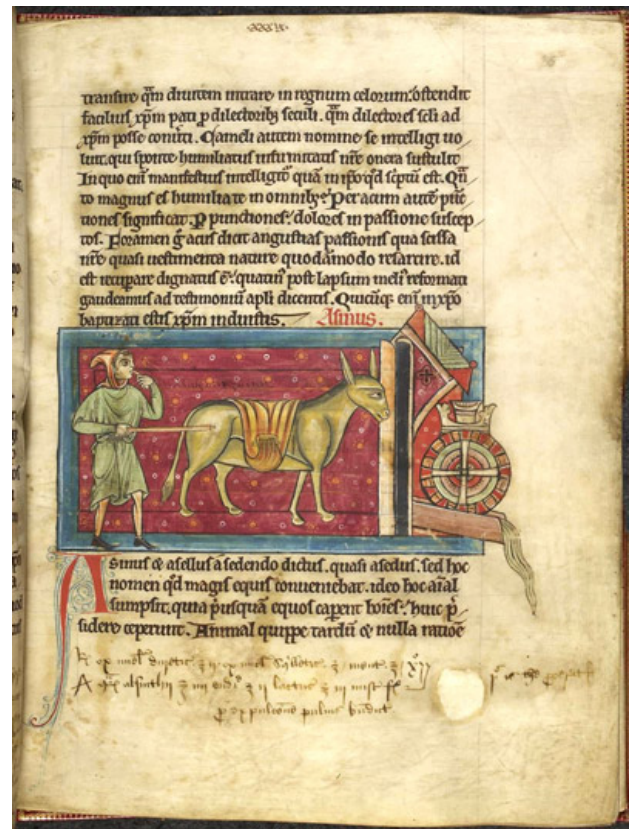 transire qm diuitem intrare in regnum celorum: ostendit
facilius xpm pati p dilectorib; seculi. qm dilectores scli ad
xpm posse conuti. Cameli autem nomine se intelligi uo
luit. qui sponte humiliatus infirmitatis nre onera sustulit.
In quo eni manifestius intelligit quam in ipo qd scptu est. Qn
to magnus es humilia te in omnib; Per acum aute punc
tiones significat. P punctiones: dolores in passione suscep
tos. Foramen g acus dicit angustias passionis qua scissa
nre quasi uestimenta nature quodamodo resarcire. id
est recupare dignatus e. quatin post lapsum meli reformati
gaudeamus ad testimoniu apli dicentis. Quicuq; eni in xpo
baptizati estis xpm induistis. Asinus.
Asinus & asellus a sedendo dictus. quasi asedus. sed hoc
nomen qd magis equis conueniebat. ideo hoc aial
sumpsit. quia pusquam equos caperent hoies: huic p
sidere ceperunt. Animal quippe tardu & nulla ratione